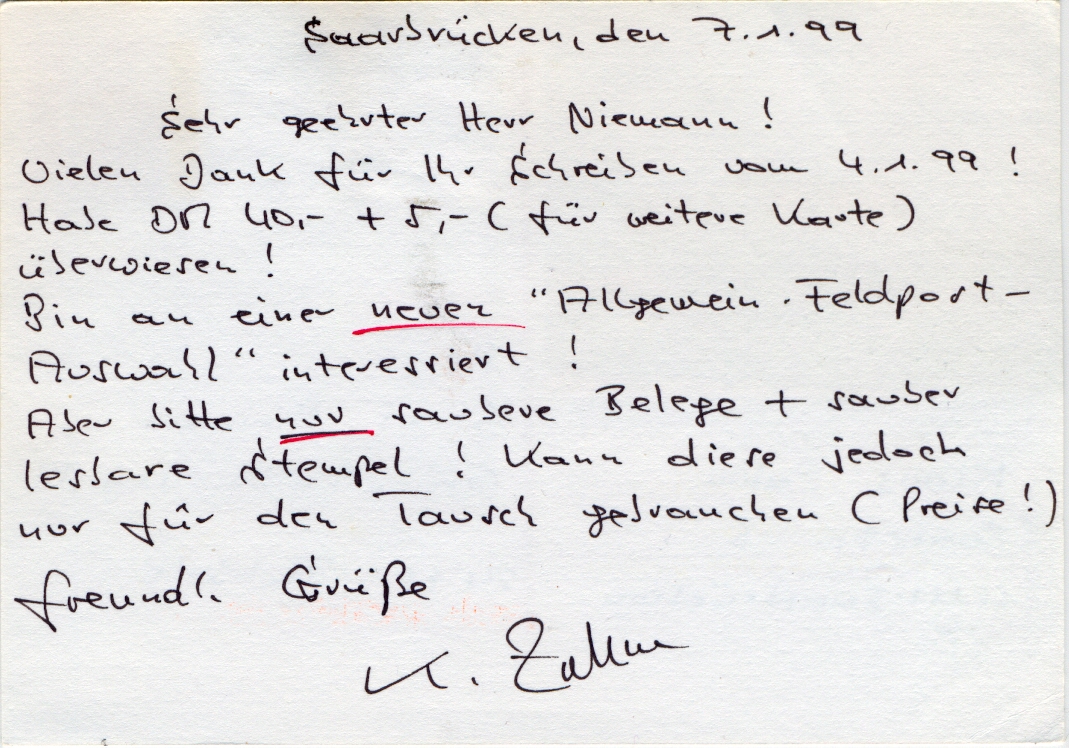 Saarbrücken, den 7.1.99
Sehr geehrter Herr Niemann!
Vielen Dank für Ihr Schreiben vom 4.1.99!
Habe DM 40,- + 5,- (für weitere Karte)
überwiesen!
Bin an einer neuen "Allgemein. Feldpost-
Auswahl" interessiert!
Aber bitte nur saubere Belege + sauber
lesbare Stempel! Kann diese jedoch
nur für den Tausch gebrauchen (Preise!)
freundl. Grüße
K.